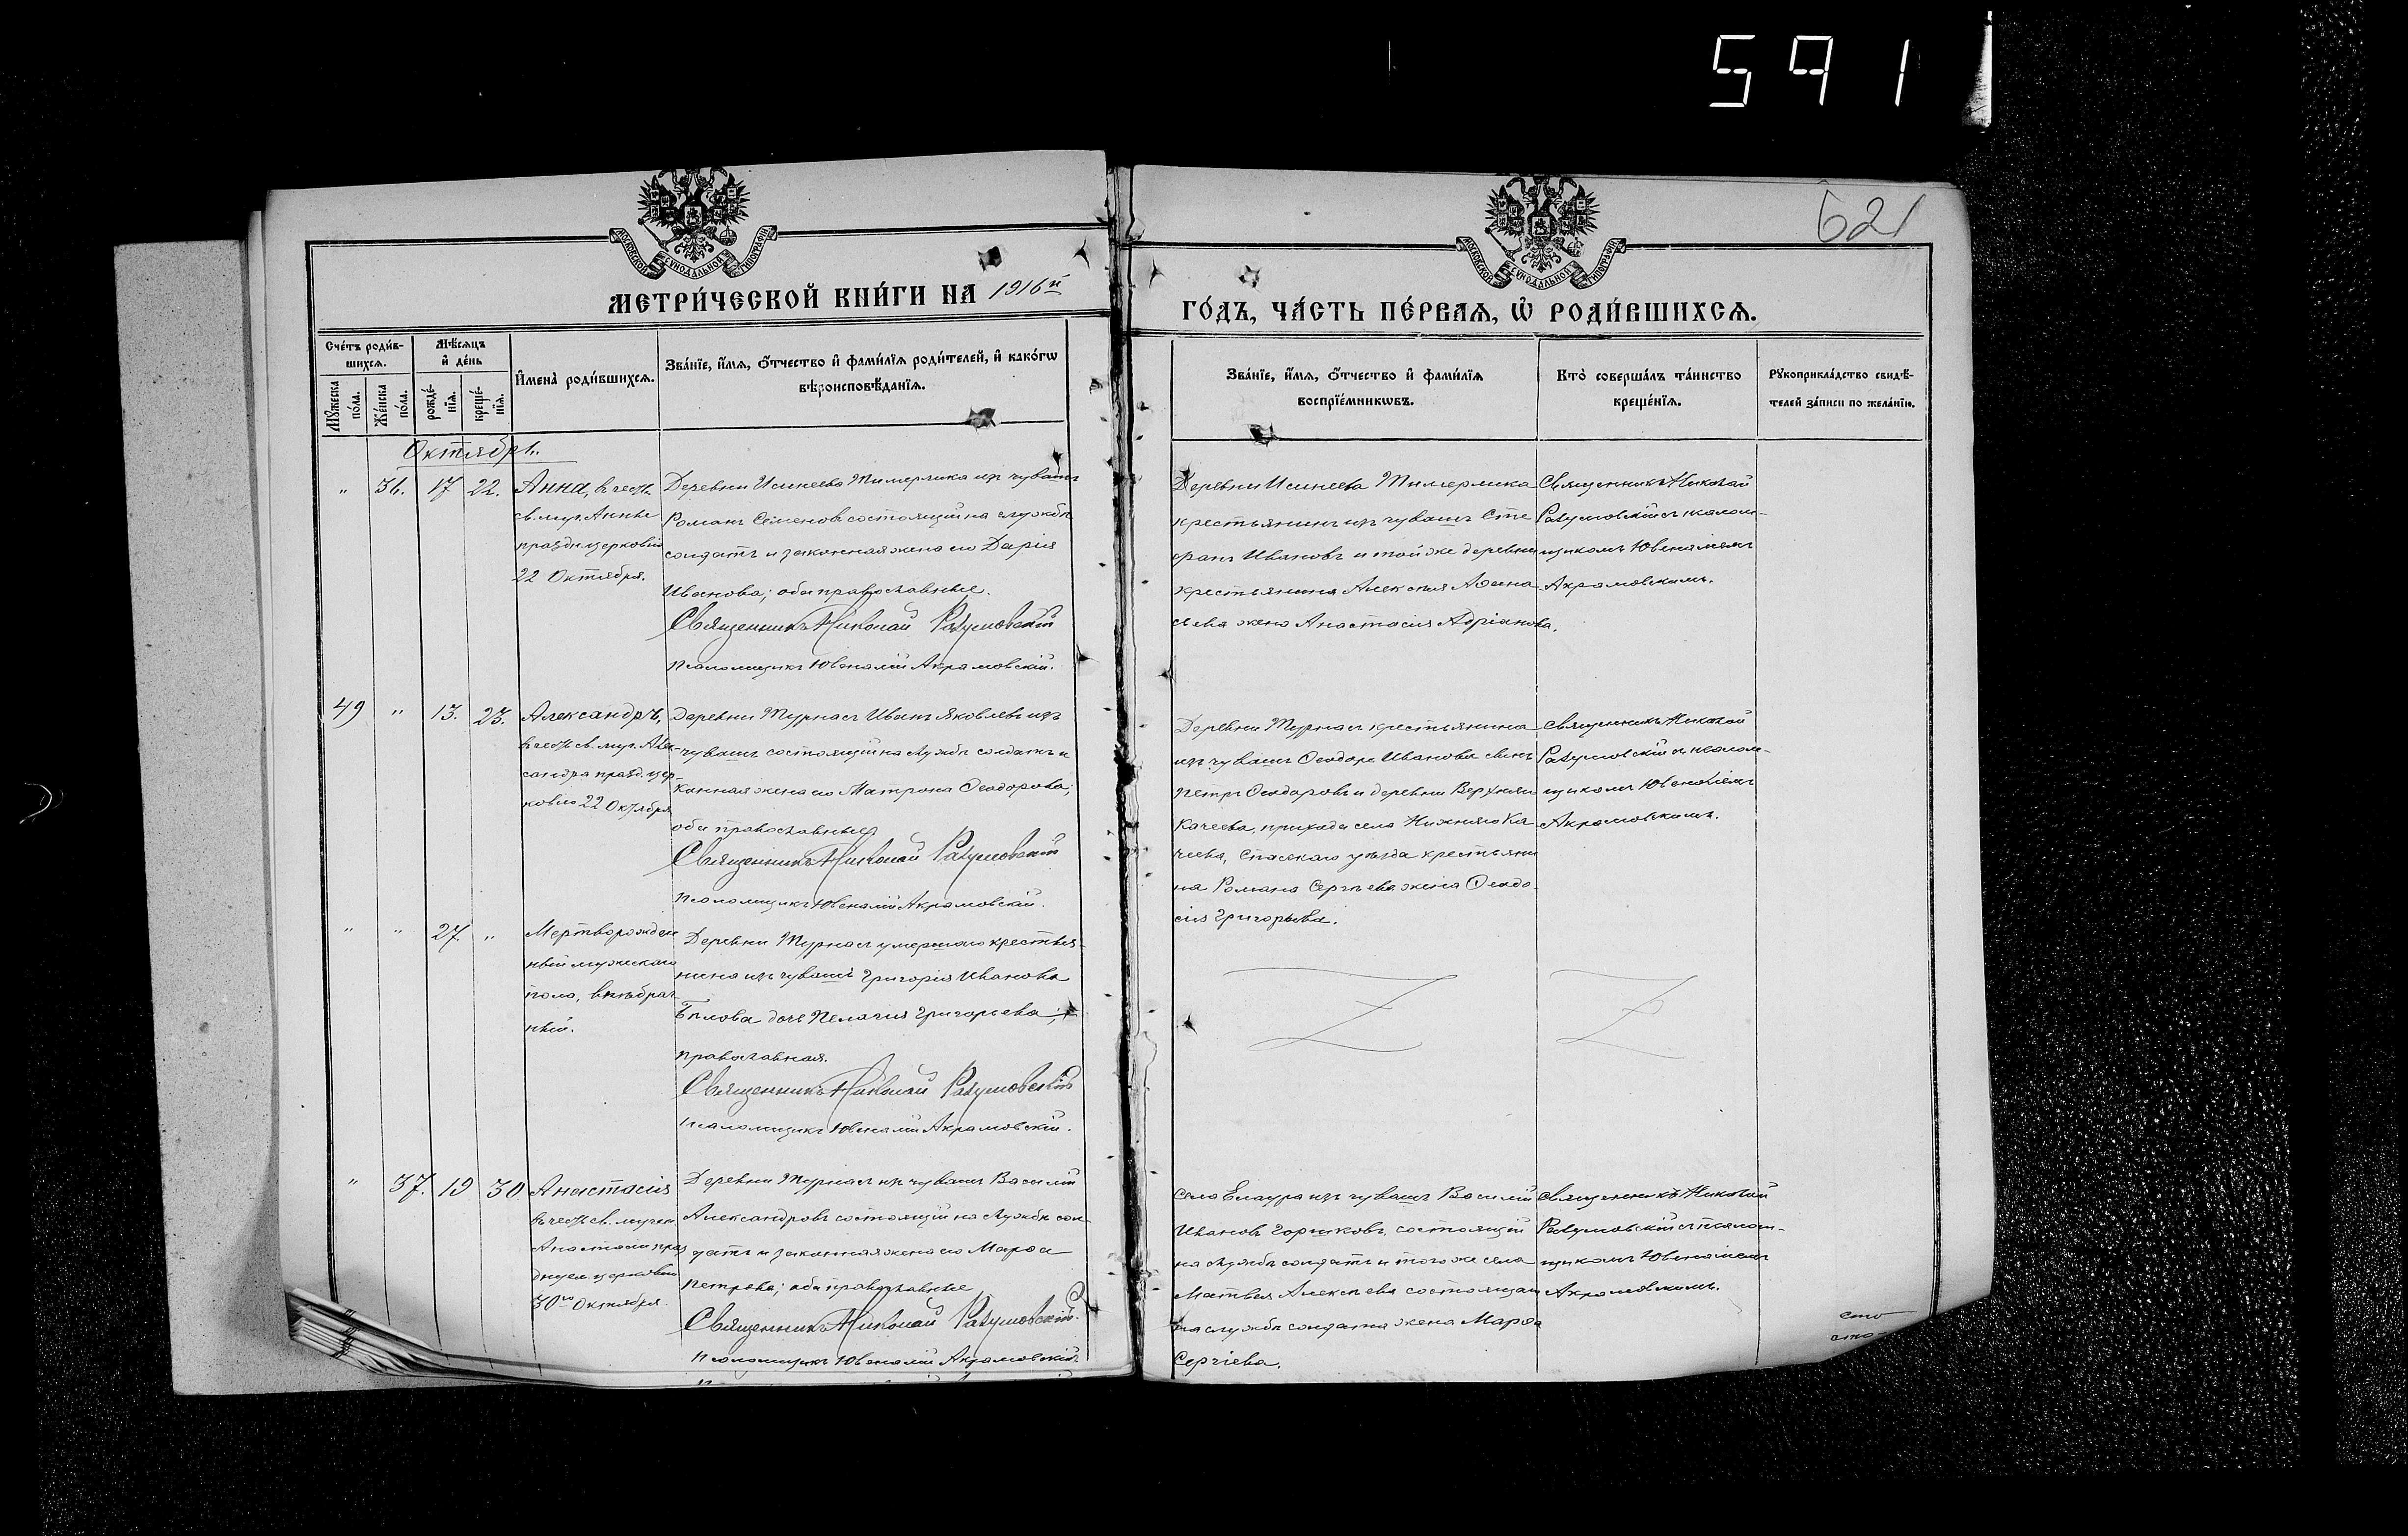 591
621
МОСКОВСКОЙ СѴНОДАЛЬНОЙ ТИПОГРАФІИ
МОСКОВСКОЙ СѴНОДАЛЬНОЙ ТИПОГРАФІИ
МЕТРИ́ЧЕСКОЙ КНИ́ГИ НА 1916й
ГО́ДЪ, ЧА́СТЬ ПЕ́РВАЯ, Ѡ РОДИ́ВШИХСЯ.
Сче́тъ роди́в-
шихся.
Мѣ́сяцъ
и҆ де́нь
Мꙋ́жеска
по́ла.
Же́нска
по́ла.
рожде́-
нїя.
креще́-
нїя.
И҆мена̀ роди́вшихся.
Зва́нїе, и҆́мя, ѻ҆́тчество и҆ фами́лїя роди́телей, и҆ како́гѡ
вѣроисповѣ́данїя.
Зва́нїе, и҆́мя, ѻ҆́тчество и҆ фами́лїя
воспрїе́мникѡвъ.
Кто̀ соверша́лъ та́инство
креще́нїя.
Рꙋкоприкла́дство свидѣ́-
телей за́писи по жела́нїю.
Октябрь.
" 36. 17 22.
Анна, въ честь
св. муч. Анны
праздн. церковію
22 Октября.
Деревни Исинеева Тимерлика изъ чувашъ
Романъ Семеновъ состоящій на службѣ
солдатъ и законная жена его Дарія
Иванова; оба православные.
Священникъ Николай Разумовскій
Псаломщикъ Ювеналій Акрамовскій.
Деревни Исинеева Тимерлика
крестьянинъ изъ чувашъ Сте
фанъ Ивановъ и той же деревни
крестьянина Алексѣя Аѳана
сьева жена Анастасія Адріанова.
Священникъ Николай
Разумовскій съ псалом-
щикомъ Ювеналіемъ
Акрамовскимъ.
49 " 13. 23.
Александръ,
въ честь св. муч. Алек-
сандра празд. цер-
ковію 22 Октября
Деревни Турнасъ Иванъ Яковлевъ изъ
чувашъ состоящій на службѣ солдатъ и
законная жена его Матрона Ѳеодорова;
оба православные.
Священникъ Николай Разумовскій
Псаломщикъ Ювеналій Акрамовскій.
Деревни Турнасъ крестьянина
изъ чувашъ Ѳеодора Иванова сынъ
Петръ Ѳеодоровъ и деревни Верхняго
Качеева, прихода села Нижняго Ка
чеева, Спасскаго уѣзда крестьяни
на Романа Сергѣева жена Ѳеодо
сія Григорьева.
Священникъ Николай
Разумовскій съ псалом-
щикомъ Ювеналіемъ
Акрамовскимъ.
" " 27. "
Мертворожден
ный мужескаго
пола, внѣбрач-
ный.
Деревни Турнасъ умершаго крестья-
нина изъ чувашъ Григорія Иванова
Бѣлова дочь Пелагія Григорьева,
православная.
Священникъ Николай Разумовскій
Псаломщикъ Ювеналій Акрамовскій.
" 37. 19 30
Анастасія
въ честь св. мучен.
Анастасіи праз
днуем. церковію
30го Октября.
Деревни Турнасъ изъ чувашъ Василій
Александровъ состоящій на службѣ сол
датъ и законная жена его Марѳа
Петрова; оба православные
Священникъ Николай Разумовскій.
Псаломщикъ Ювеналій Акрамовскій
Села Елаура изъ чувашъ Василій
Ивановъ Горшковъ, состоящій
на службѣ солдатъ и того же села
Матвея Алексѣева состоящаго
на службѣ солдатна жена Марѳа
Сергіева.
Священникъ Николай
Разумовскій съ псалом-
щикомъ Ювеналіемъ
Акрамовскимъ.